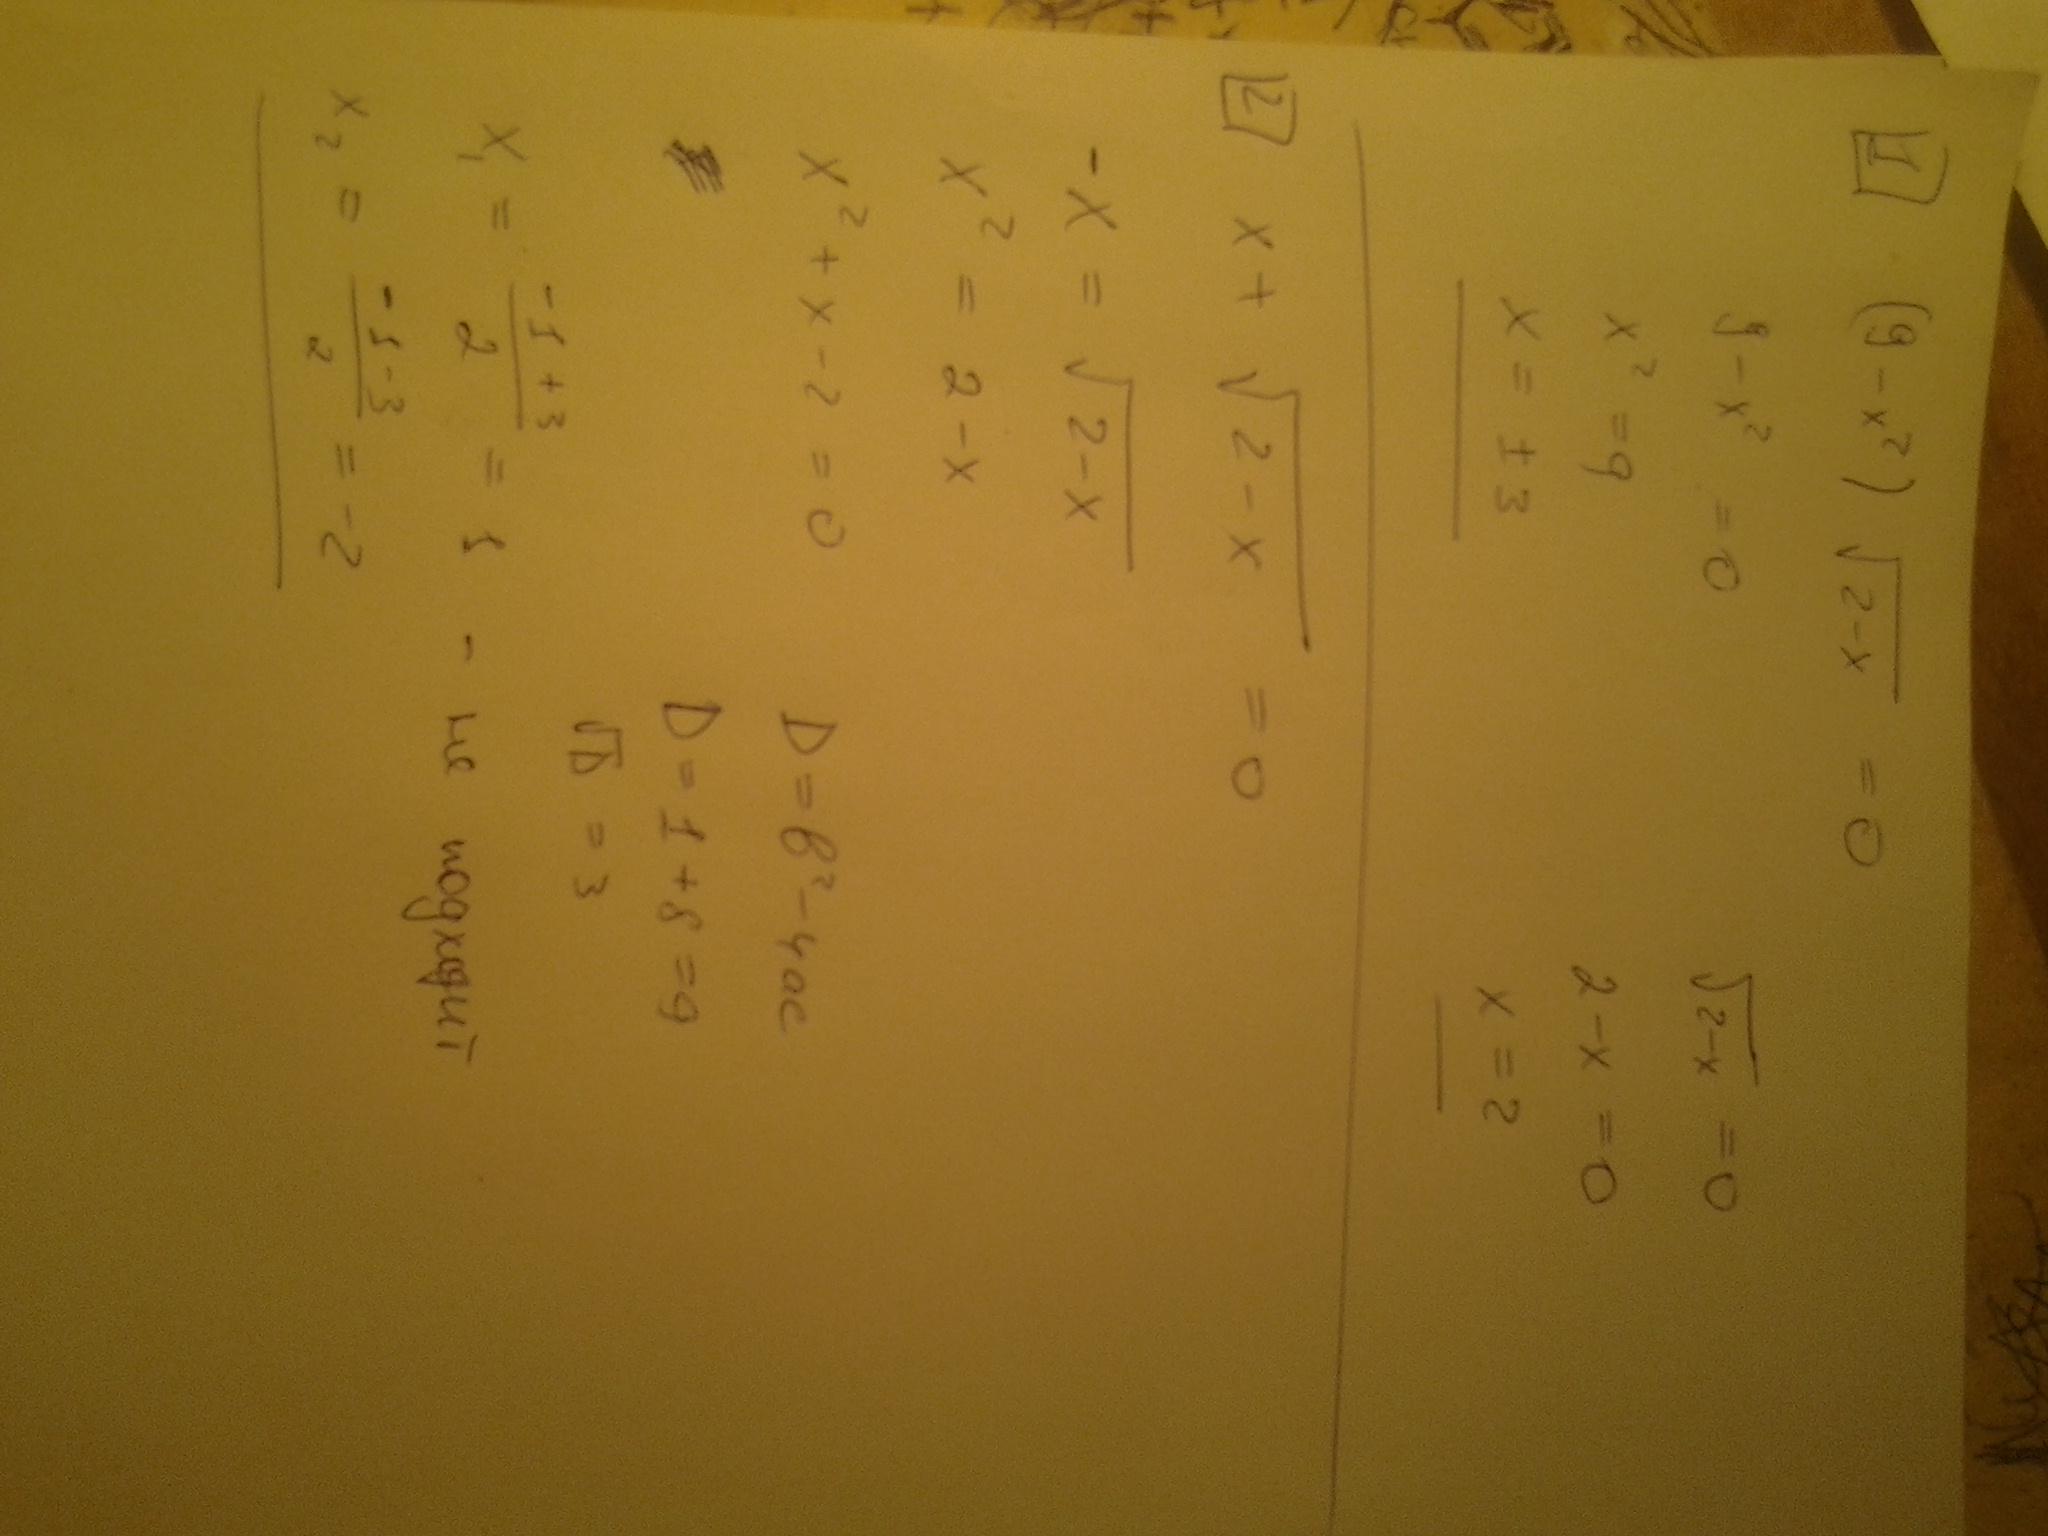 1 (9 - x²) √2-x = 0
9 - x² = 0 √2-x = 0
x² = 9 2 - x = 0
x = ±3 x = 2
2 x + √2-x = 0
-x = √2-x
x² = 2 - x
x² + x - 2 = 0 D = b² - 4ac
D = 1 + 8 = 9
√D = 3
x₁ = (-1+3)/2 = 1 - не подходит
x₂ = (-1-3)/2 = -2